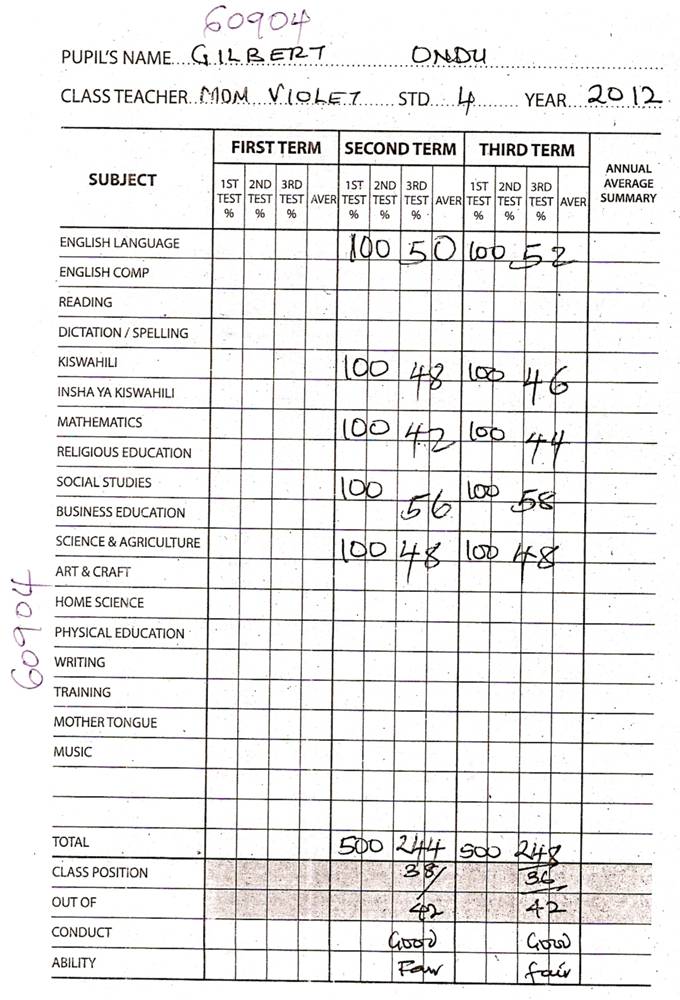 60904
PUPIL'S NAME...GILBERT ONDU
CLASS TEACHER MDM VIOLET STD 4 YEAR 2012
SUBJECT FIRST TERM SECOND TERM THIRD TERM ANNUAL AVERAGE SUMMARY
1ST TEST % 2ND TEST % 3RD TEST % AVER 1ST TEST % 2ND TEST % 3RD TEST % AVER 1ST TEST % 2ND TEST % 3RD TEST % AVER
ENGLISH LANGUAGE 100 50 100 52
ENGLISH COMP
READING
DICTATION / SPELLING
KISWAHILI 100 48 100 46
INSHA YA KISWAHILI
MATHEMATICS 100 42 100 44
RELIGIOUS EDUCATION
SOCIAL STUDIES 100 56 100 58
BUSINESS EDUCATION
SCIENCE & AGRICULTURE 100 48 100 48
ART & CRAFT
HOME SCIENCE
PHYSICAL EDUCATION
WRITING
TRAINING
MOTHER TONGUE
MUSIC
TOTAL 500 244 500 248
CLASS POSITION 38/ 36
OUT OF 42 42
CONDUCT Good Good
ABILITY Fair fair
60904